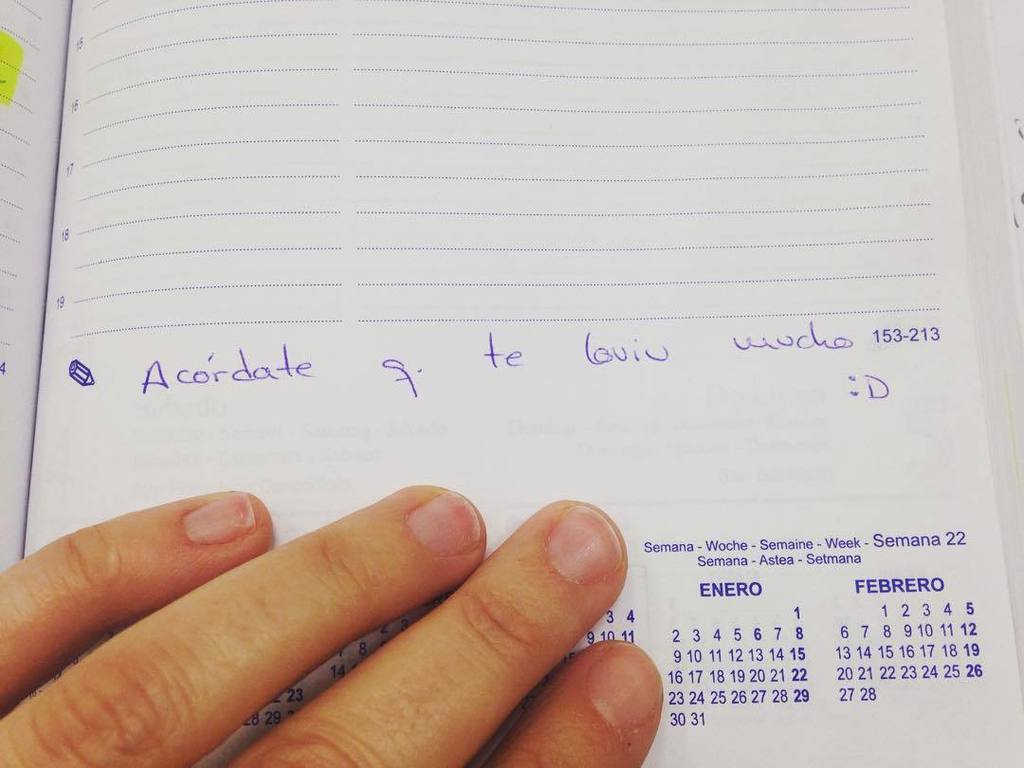 15
16
17
18
19
Acórdate q. te loviu mucho 153-213
:D
4
Semana - Woche - Semaine - Week - Semana 22
Semana - Astea - Setmana
ENERO FEBRERO
1 1 2 3 4 5
2 3 4 5 6 7 8 6 7 8 9 10 11 12
9 10 11 12 13 14 15 13 14 15 16 17 18 19
16 17 18 19 20 21 22 20 21 22 23 24 25 26
23 24 25 26 27 28 29 27 28
30 31
3 4
9 10 11